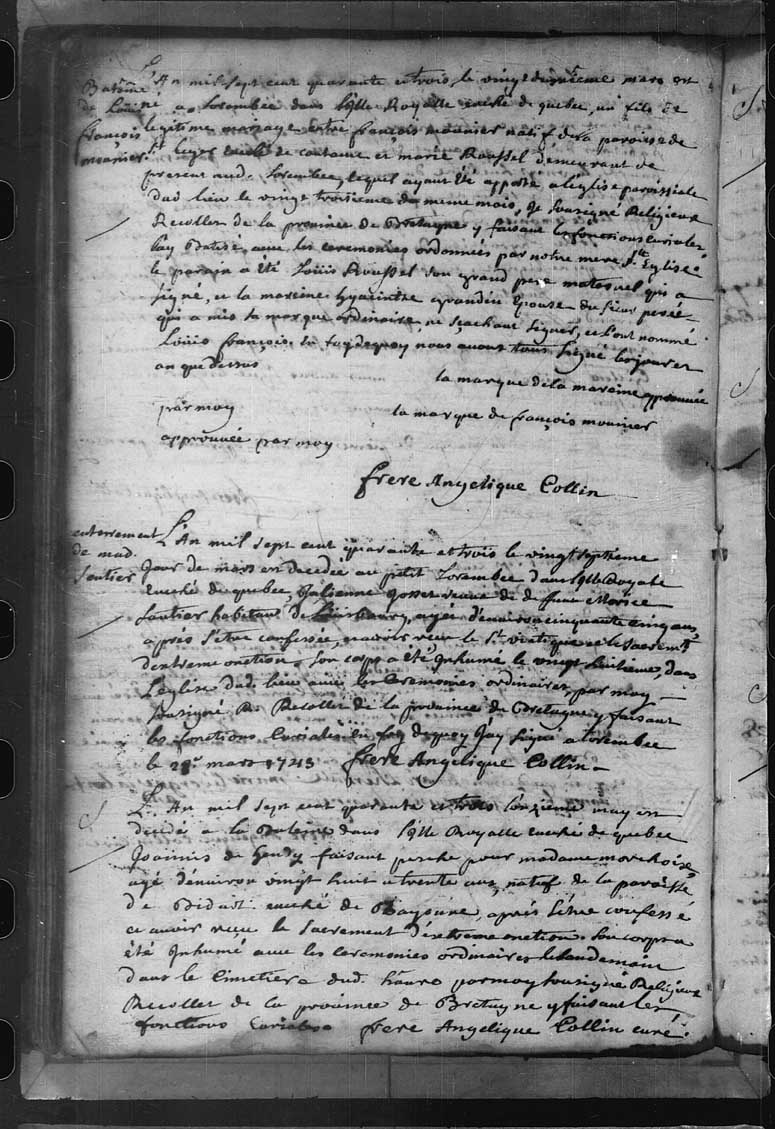 Batême
de Louis
François
mounier
L'An mil sept cent quarante et trois, le vingt deuxieme mars est
né a Lorembéc dans l'Isle Royalle eveché de quebec, un fils de
legitime mariage entre françois mounier natif de la paroisse de
St leger evêché de coutance et marie Roussel demeurant de
present aud. Lorembec, lequel ayant été apporté a l'église paroissiale
dud lieu le vingt troisieme du meme mois, Je sousigné Religieux
Recollet de la province de Bretagne y faisant les fonctions curiales
L'ay Batisé, avec les ceremonies ordonnées par notre mere Ste Eglise
le parain a été Louis Roussel son grand pere maternel qui a
signé, et la mareine hyacinthe grandin épouse du sieur
qui a mis sa marque ordinaire, ne sçachant signer, et l'ont nommé
Louis François. En foy de quoy nous avons tous signé les jour et
an que dessus
la marque de la mareine approuvée
par moy
la marque de françois mounier
approuvée par moy
frere Angelique Collin
enterrement
de mad.
Santier
L'An mil sept cent quarante et trois le vingt septieme
Jour de mars est decedée au petit Lorembéc dans l'Isle Royale
Eveché de quebec, Julienne Josset veuve de deffunt
Santier habitant de Louisbourg, agée d'environ cinquante cinq ans,
apres s'être confessée, et avoir reçu le St viatique et le Sacremt
d'extreme onction. Son corps a été Inhumé le vingt huitieme, dans
L'eglise dud. lieu avec les Ceremonies ordinaires, par moy
sousigné R. Recollet de la province de Bretagne y faisant
les fonctions Curiales En foy de quoy J'ay signé a Lorembec
le 28e mars 1743 frere Angelique Collin
L'An mil sept cent quarante et trois l'onzieme may est
decedé a la Baleine dans l'Isle Royalle eveché de quebec
Joannis de faisant pesche pour madame
agé d'environ vingt huit a trente ans, natif de la paroisse
de Bidart eveché de Bayonne, après s'être confessé
et avoir reçu le Sacrement d'extreme onction. Son corps a
été Inhumé avec les ceremonies ordinaires le lendemain
dans le Cimetiere dud. havre par moy sousigné Religieux
Recollet de la province de Bretagne y faisant les
fonctions Curiales frere Angelique Collin curé.